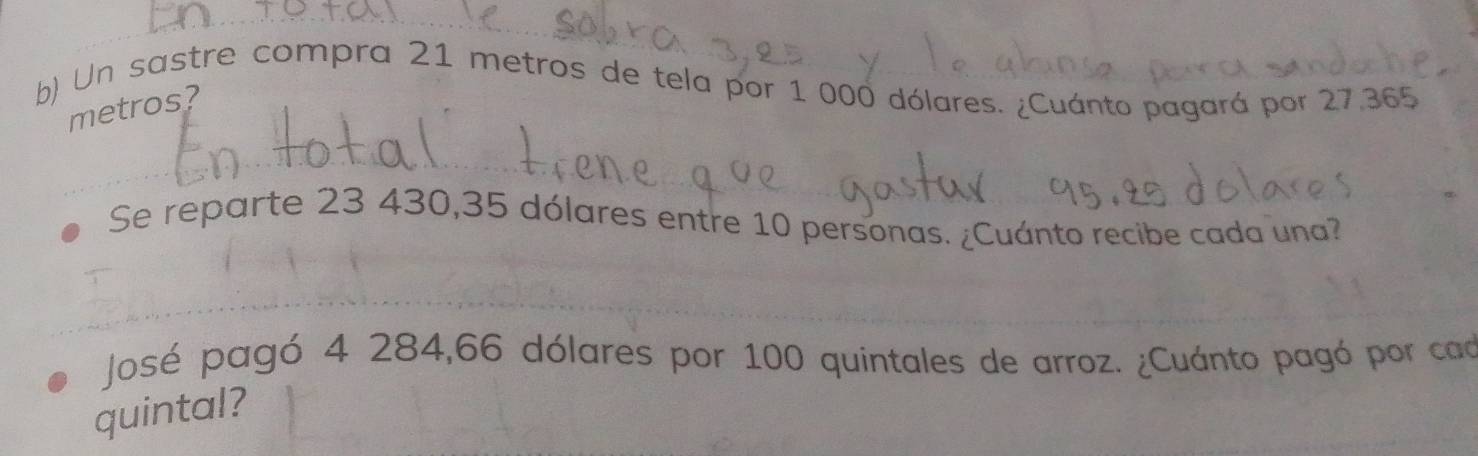 En total le sobra 3,25 y le alcansa para sanduche.
b) Un sastre compra 21 metros de tela por 1 000 dólares. ¿Cuánto pagará por 27,365
metros?
En total tiene que gastar 95.25 dolares
• Se reparte 23 430,35 dólares entre 10 personas. ¿Cuánto recibe cada una?
• José pagó 4 284,66 dólares por 100 quintales de arroz. ¿Cuánto pagó por cad
quintal?